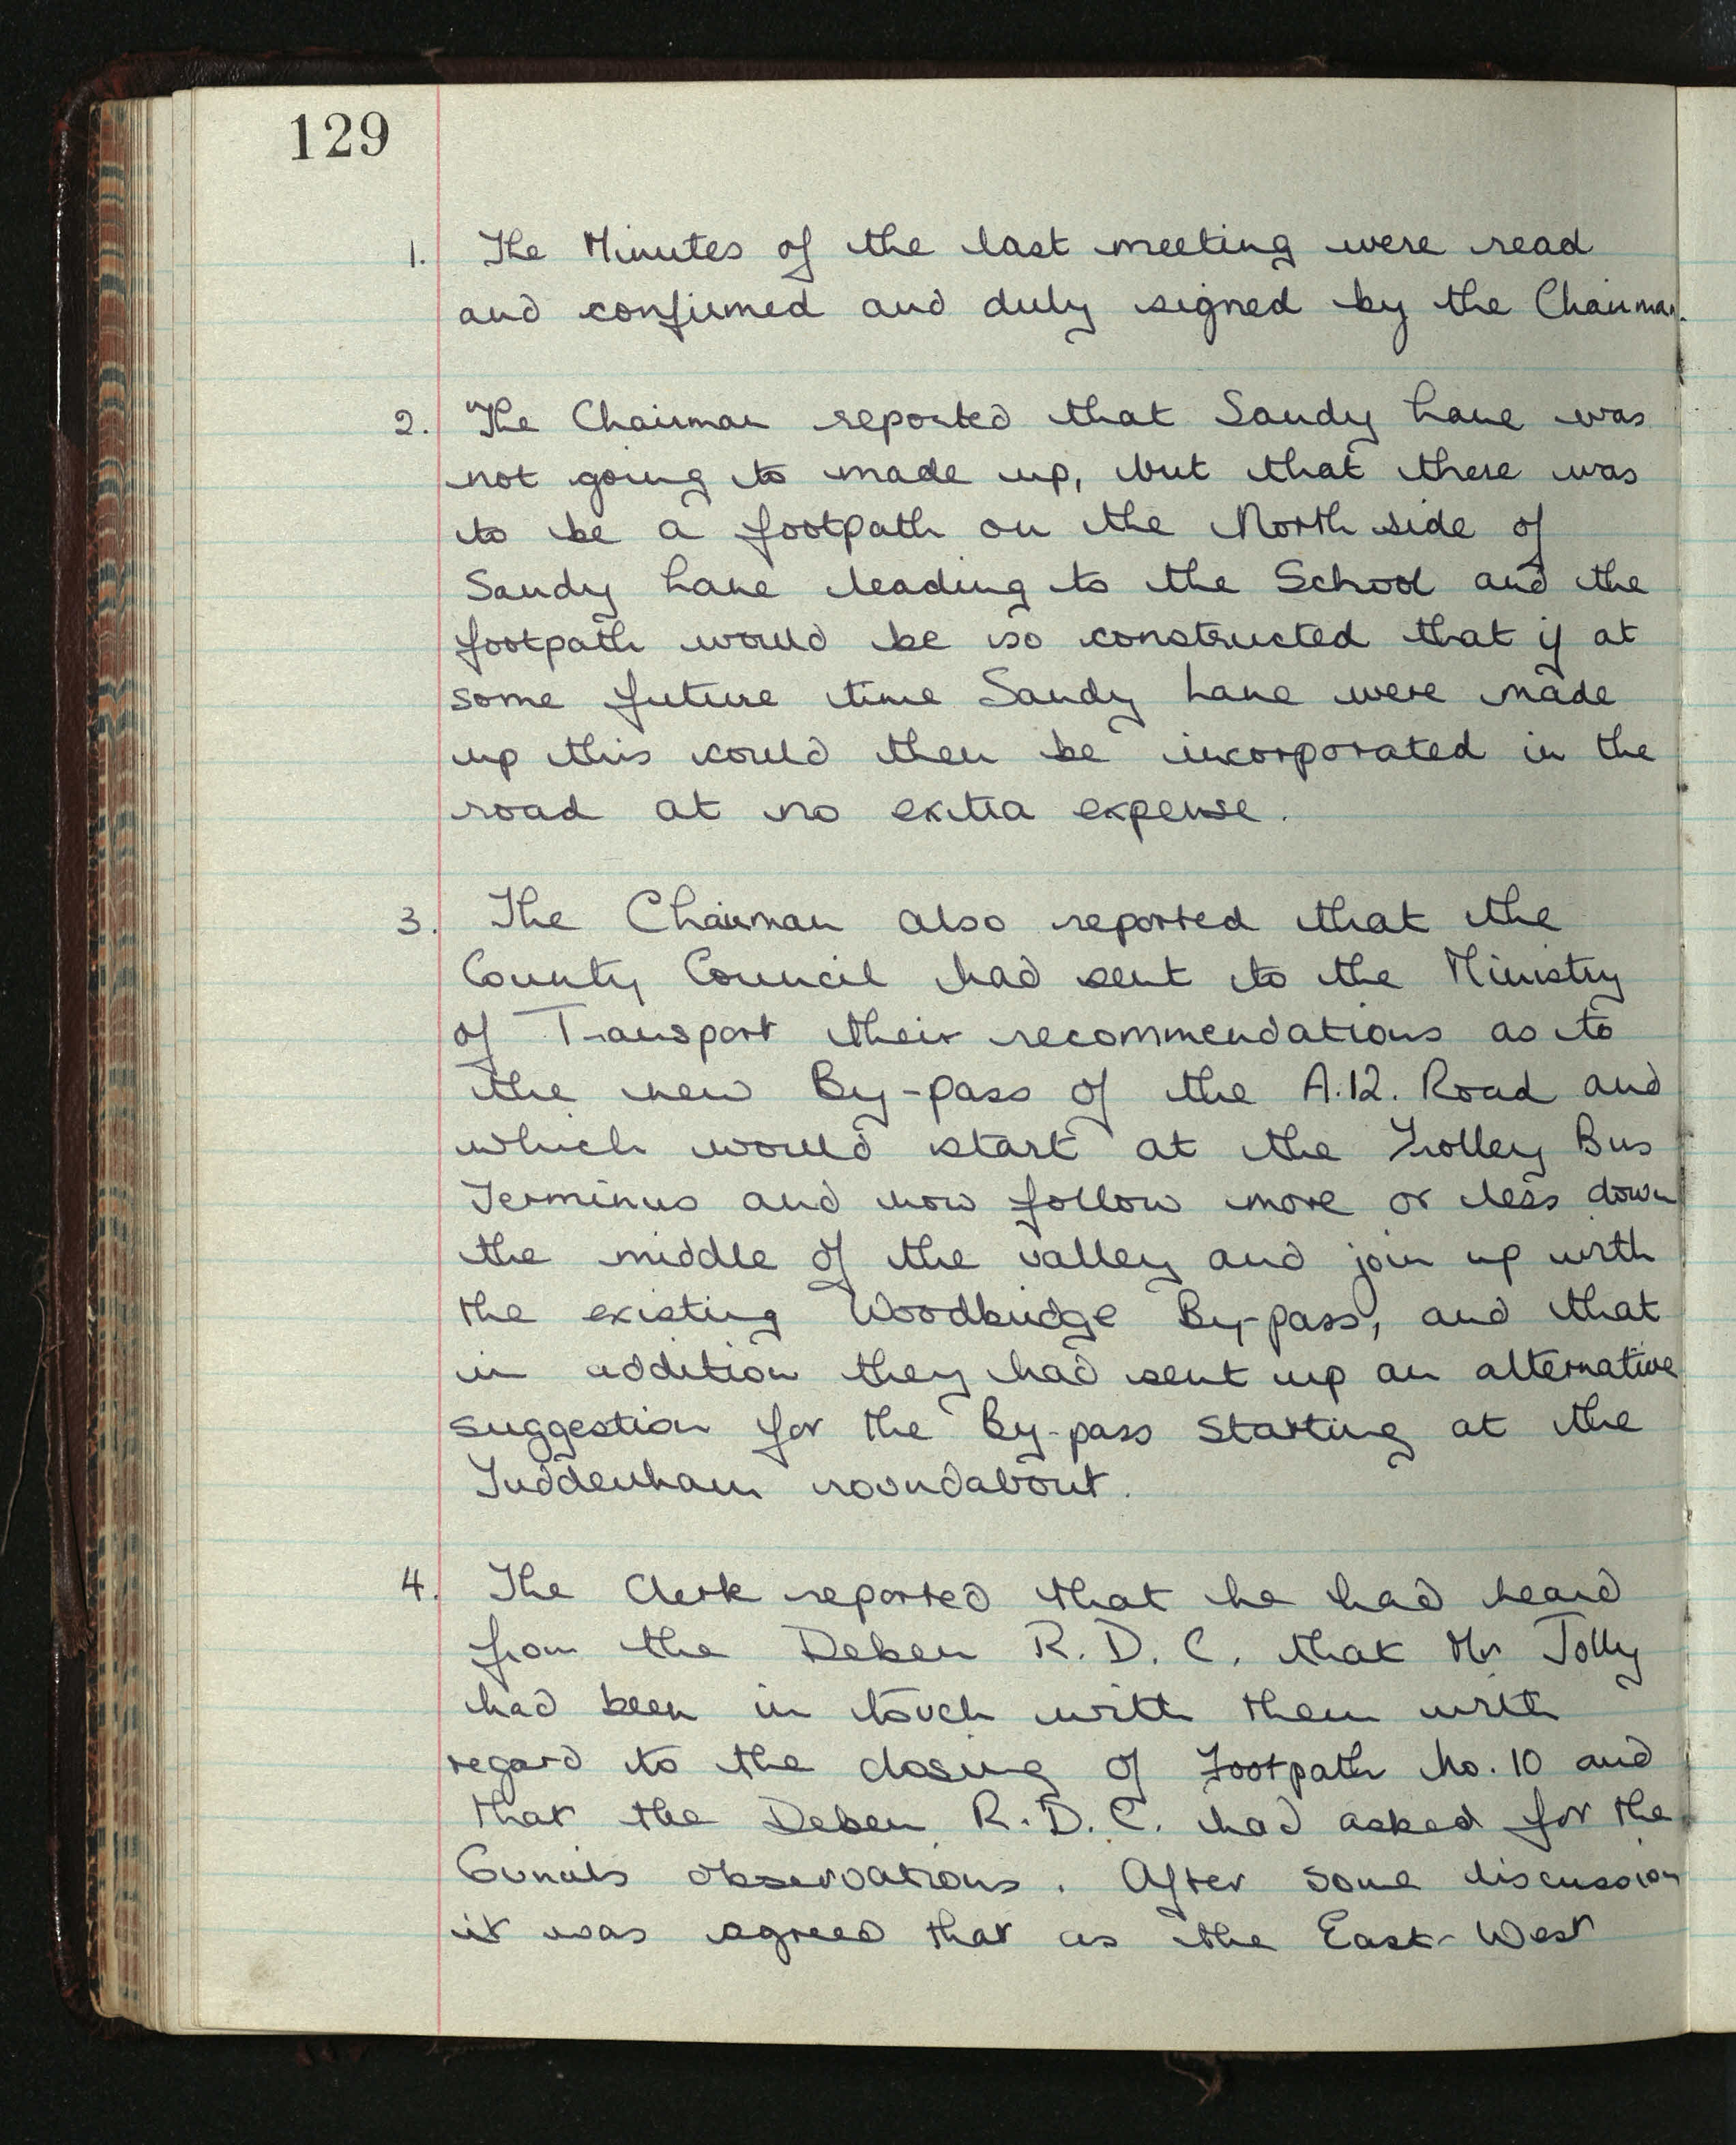 129
1. The Minutes of the last meeting were read
and confirmed and duly signed by the Chairman.
2. The Chairman reported that Sandy Lane was
not going to made up, but that there was
to be a footpath on the North side of
Sandy Lane leading to the School and the
footpath would be so constructed that if at
some future time Sandy Lane were made
up this could then be incorporated in the
road at no extra expense.
3. The Chairman also reported that the
County Council had sent to the Ministry
of Transport their recommendations as to
the new By-pass of the A.12. Road and
which would start at the Trolley Bus
Terminus and now follow more or less down
the middle of the valley and join up with
the existing Woodbridge By-pass, and that
in addition they had sent up an alternative
suggestion for the By-pass starting at the
Tuddenham roundabout.
4. The Clerk reported that he had heard
from the Deben R.D.C. that Mr Jolly
had been in touch with them with
regard to the closing of Footpath No. 10 and
that the Deben R.D.C. had asked for the
Councils observations. After some discussion
it was agreed that as the East-West